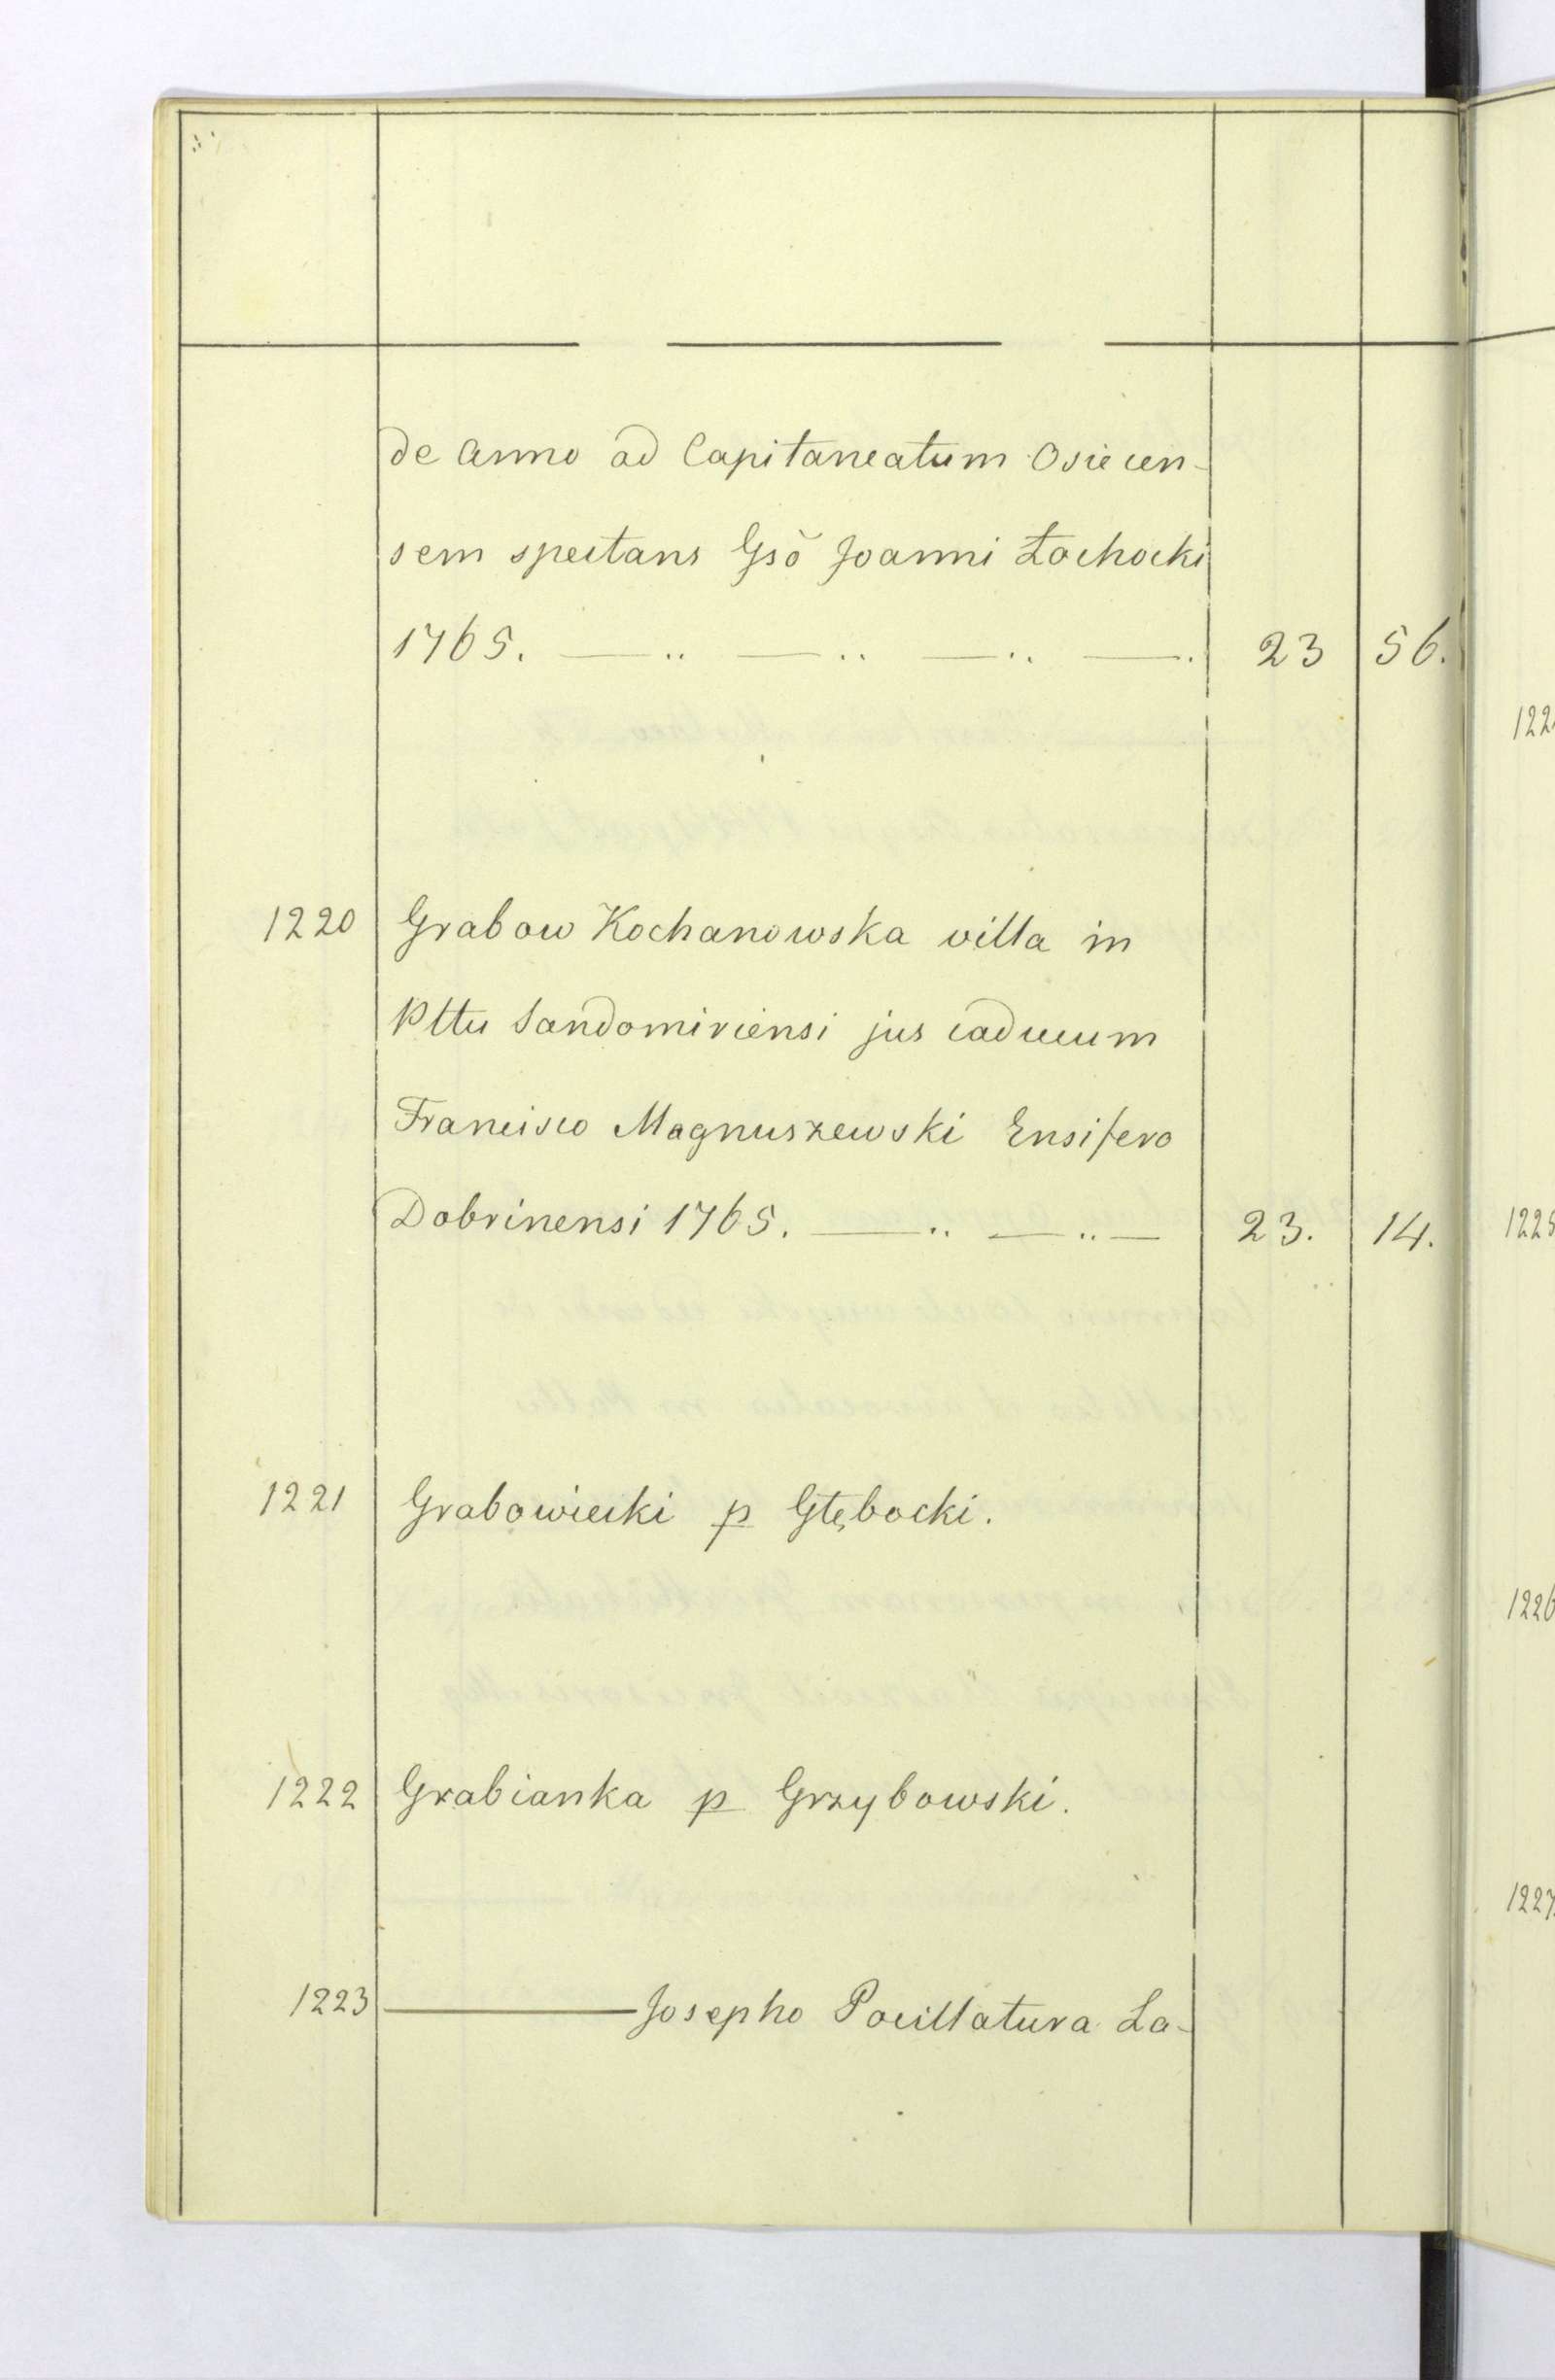 de Anno ad Capitaneatum Osiecen-
sem spectans Gsō Joanni Łochocki
1765. — .. — .. — .. — . 23 56.
1220 Grabow Kochanowska villa in
Pttu Sandomiriensi jus caducum
Francisco Magnuszewski Ensifero
Dobrinensi 1765. — .. — .. — 23. 14.
1221 Grabowiecki p Głębocki.
1222 Grabianka p Grzybowski.
1223 — Josepho Pocillatura La-
122
1225
1226
1227